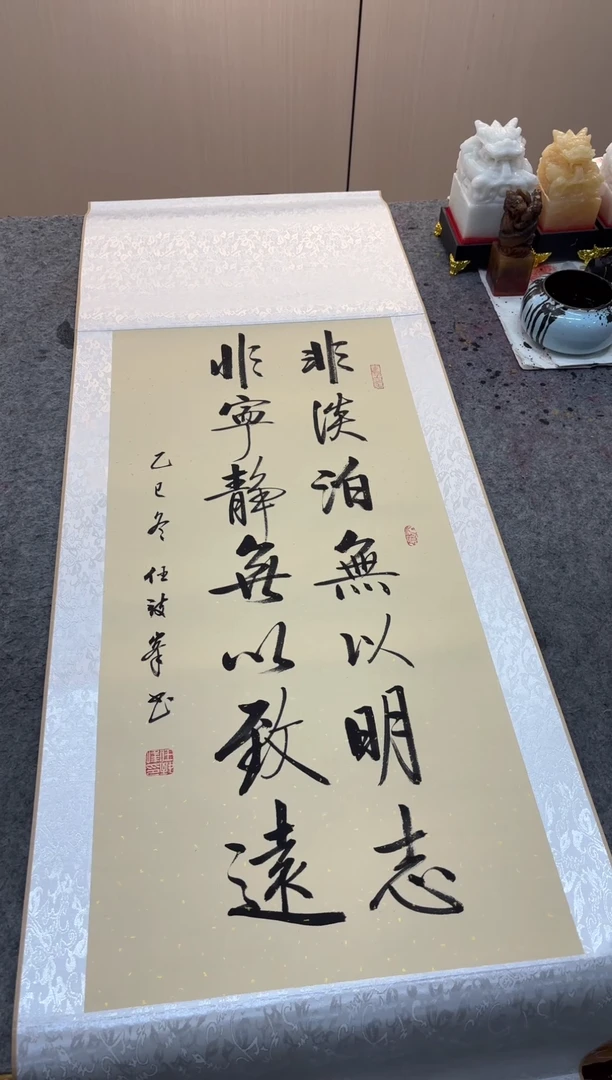 非淡泊無以明志
非寧靜無以致遠
乙巳冬 任
峯书